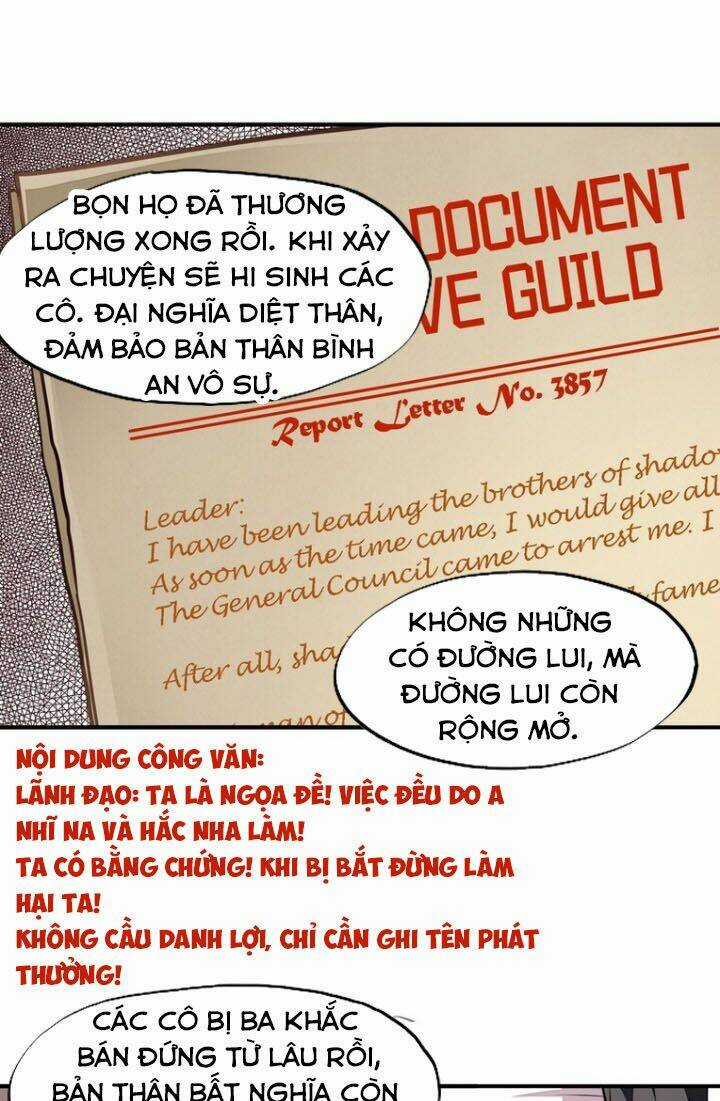 BỌN HỌ ĐÃ THƯƠNG
LƯỢNG XONG RỒI. KHI XẢY
RA CHUYỆN SẼ HI SINH CÁC
CÔ. ĐẠI NGHĨA DIỆT THÂN,
ĐẢM BẢO BẢN THÂN BÌNH
AN VÔ SỰ.
DOCUMENT
VE GUILD
Report Letter No. 3857
Leader:
I have been leading the brothers of shadow
As soon as the time came, I would give all
The General Council came to arrest me. I
fame
After all, sha
man of
KHÔNG NHỮNG
CÓ ĐƯỜNG LUI, MÀ
ĐƯỜNG LUI CÒN
RỘNG MỞ.
NỘI DUNG CÔNG VĂN:
LÃNH ĐẠO: TA LÀ NGỌA ĐỀ! VIỆC ĐỀU DO A
NHĨ NA VÀ HẮC NHA LÀM!
TA CÓ BẰNG CHỨNG! KHI BỊ BẮT ĐỪNG LÀM
HẠI TA!
KHÔNG CẦU DANH LỢI, CHỈ CẦN GHI TÊN PHÁT
THƯỞNG!
CÁC CÔ BỊ BA KHẮC
BÁN ĐỨNG TỪ LÂU RỒI,
BẢN THÂN BẤT NGHĨA CÒN